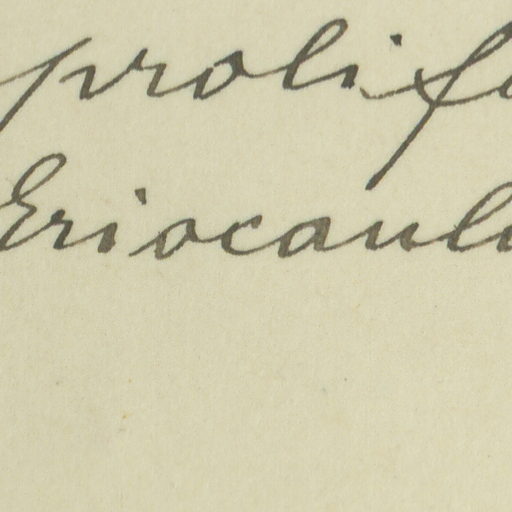 prolif
Eriocaul